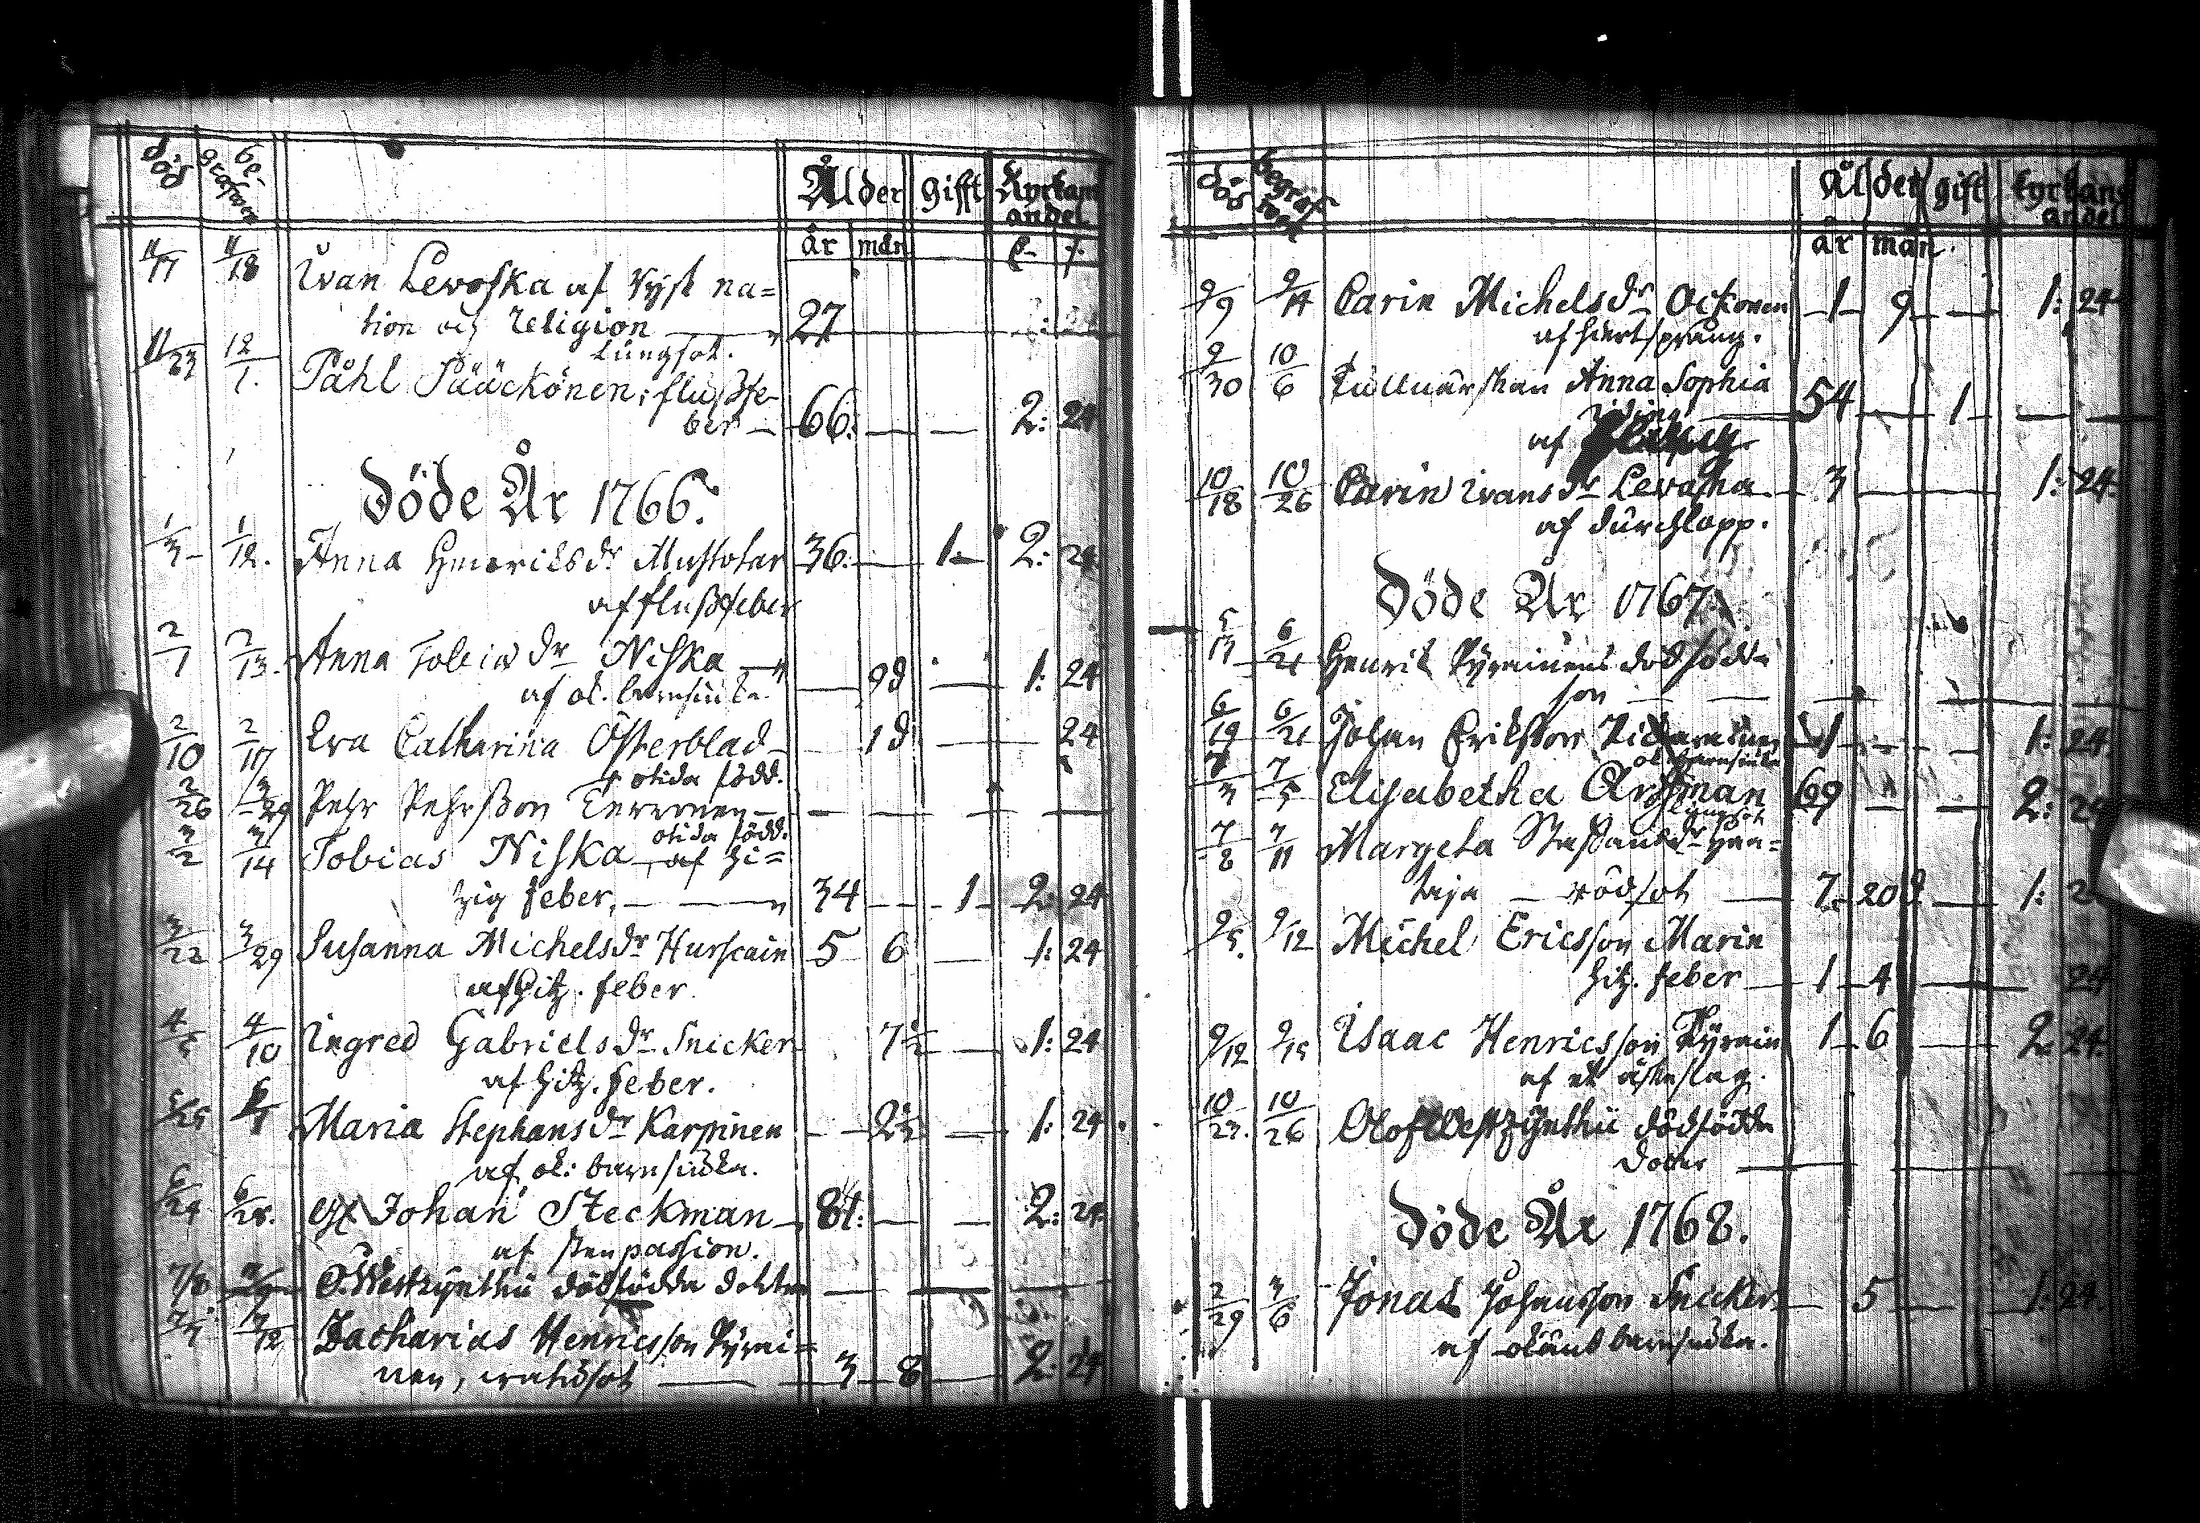 död be-
grafven Ålder gifft Kyrkans
andel
år mån
11/17 11/18 Ivan Levoska af Rysk na=
tion och religion — 27
Lungsot.
11/23 12/1. Påhl Pääckönen; flussfe-
ber — 66: — — 2: 24
Döde År 1766.
1/3 1/12. Anna Henricksdr Mustolar 36: — 1 — 2: 24
af flussfeber
2/1 2/13. Anna Tobiædr Niska — 9d — 1: 24
af ok. barnsiuka.
2/10 2/17 Eva Catharina Österblad — 1d — 24
otida född.
2/26 Pehr Pehrsson — — —
otida född.
3/2 3/14 Tobias Niska — af hi=
zig feber, — 34 — 1 — 2: 24
3/22 3/29 Susanna Michelsdr Hurscain 5 6 — 1: 24
af hitz. feber.
4/10 Ingred Gabrielsdr Snicker 7½ — 1: 24
af hitz. feber.
5/25 Maria Stephansdr Karpinen — 2½ — 1: 24
af ok: barnsiuka.
6/24 Johan Steckman — 81: — — 2: 24
af stenpassion.
O. Westzynthii dödfödda dotter — — —
Zacharias Henricsson Pyrai=
nen, — 3 8 — 2: 24
död begraf
ven Ålder gift kyrkans
andel
år mån.
9/9 9/14 Carin Michelsdr Ockonen 1 9 — 1: 24
af hiertsprång.
9/30 10/6 Tullnärskan Anna Sophia
54 — 1 — —
af
10/18 10/26 Carin Ivansdr Levoska — 3 — 1: 24
af durchlopp.
Döde År 1767.
5/17 6/21 Henrik Pyrainens dödfödde
son — — —
6/19 6/21 Johan Eriksson 1 — — 1: 24
ok. barnsiuka
7/3 7/5 Elisabetha 69 — — 2: 24
7/8 7/11 Margeta Staffansdr Han=
taja — rödsot — 7. 20d — 1: 24
9/5. 9/12 Michel Ericsson Marin
hitz. feber — 1 4 — 24
9/12 9/15 Isaac Henricsson Pyrain 1 6 — 2 24
af et åskeslag.
10/23. 10/26 Olof Westzynthii dödfödda
dotter — — —
Döde År 1768.
2/29 3/6 Jonas Johansson Snicker — 5 — 1: 24
af okänd barnsiuka.